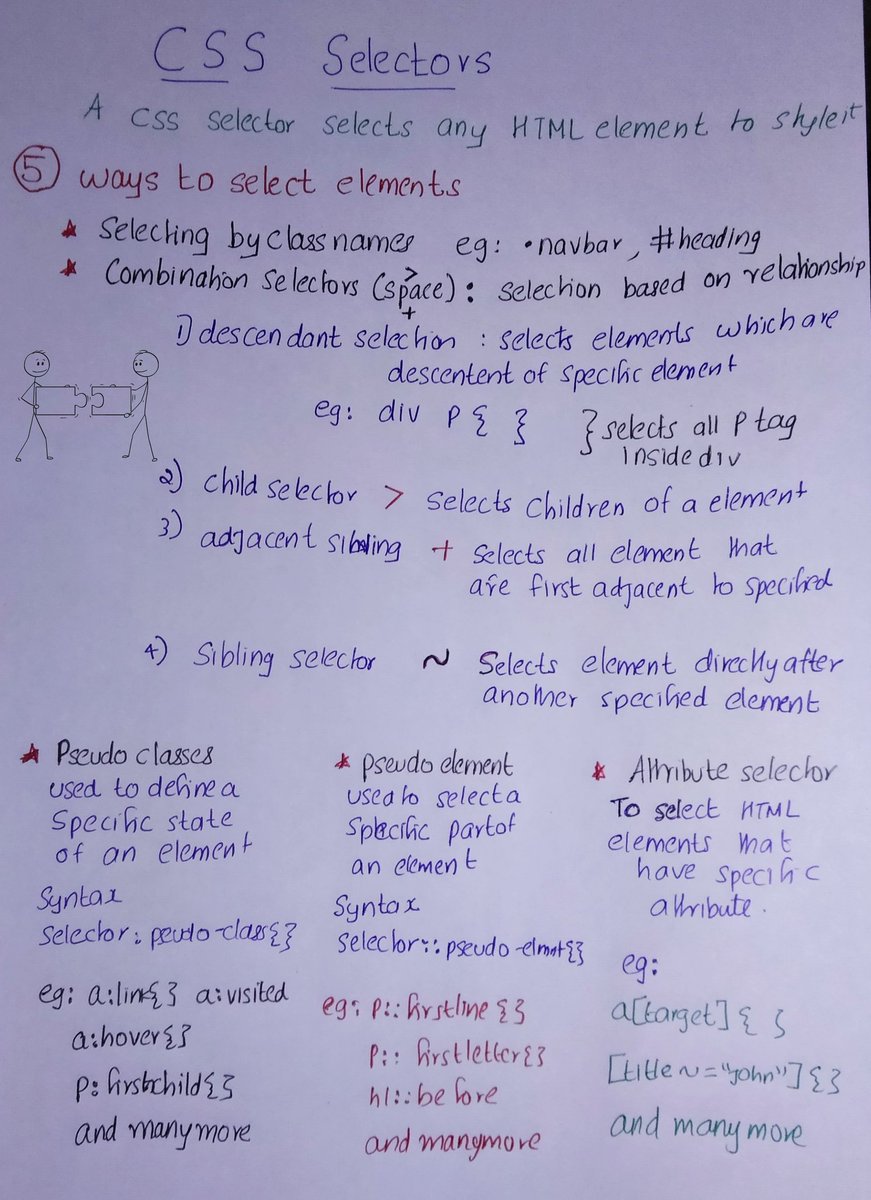 CSS Selectors
A CSS selector selects any HTML element to style it
5 ways to select elements
* Selecting by class names eg: .navbar, #heading
>
* Combination Selectors (space): selection based on relationship
+
1) descendant selection : selects elements which are
descentent of specific element
eg: div p { } } selects all p tag
inside div
2) child selector > selects children of a element
3) adjacent sibling + selects all element that
are first adjacent to specified
4) Sibling selector ~ Selects element directly after
another specified element
* Pseudo classes
used to define a
specific state
of an element
Syntax
Selector: peudo-class{}
eg: a:link{} a:visited
a:hover{}
p:firstchild{}
and many more
* pseudo element
used to select a
specific part of
an element
Syntax
Selector:: pseudo-elmnt{}
eg: p::firstline {}
p:: firstletter{}
h1::before
and many more
* Attribute selector
To select HTML
elements that
have specific
attribute.
eg:
a[target] { }
[title~="John"] { }
and many more